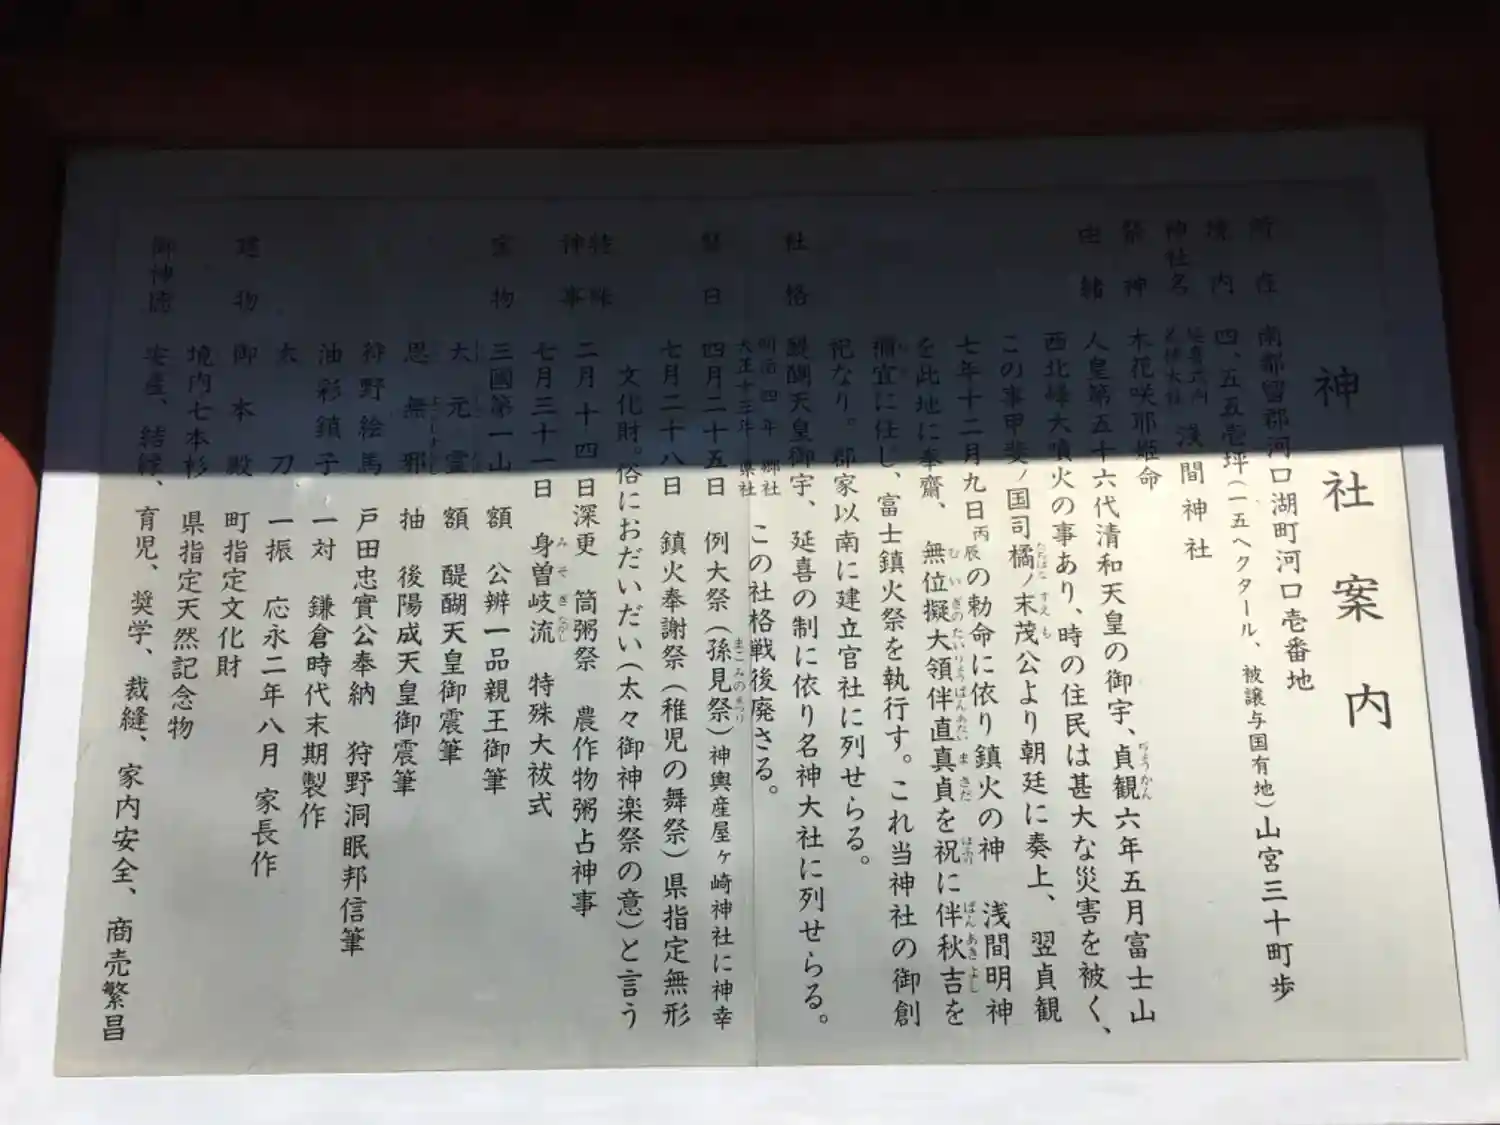 神社案内
所在 南都留郡河口湖町河口壱番地
境内 四、五五壱坪(一五ヘクタール、被譲与国有地)山宮三十町歩
神社名 延喜式内 名神大社 浅間神社
祭神 木花咲耶姫命
由緒 人皇第五十六代清和天皇の御宇、貞観六年五月富士山
西北峰大噴火の事あり、時の住民は甚大な災害を被く、
この事甲斐ノ国司橘ノ末茂公より朝廷に奏上、翌貞観
七年十二月九日丙辰の勅命に依り鎮火の神 浅間明神
を此地に奉齋、無位擬大領伴直真貞を祝に伴秋吉を
禰宜に任し、富士鎮火祭を執行す。これ当神社の御創
祀なり。郡家以南に建立官社に列せらる。
醍醐天皇御宇、延喜の制に依り名神大社に列せらる。
社格 明治四年 郷社 大正十三年 県社 この社格戦後廃さる。
祭日 四月二十五日 例大祭(孫見祭)神輿産屋ヶ崎神社に神幸
七月二十八日 鎮火奉謝祭(稚児の舞祭)県指定無形
文化財。俗におだいだい(太々御神楽祭の意)と言う
特殊神事 二月十四日深更 筒粥祭 農作物粥占神事
七月三十一日 身曽岐流 特殊大祓式
宝物 三國第一山 額 公辨一品親王御筆
大元霊 額 醍醐天皇御震筆
思無邪 抽 後陽成天皇御震筆
狩野絵馬 戸田忠實公奉納 狩野洞眠邦信筆
油彩鎖子 一対 鎌倉時代末期製作
太刀 一振 応永二年八月 家長作
建物 御本殿 町指定文化財
境内七本杉 県指定天然記念物
御神徳 安産、結縁、育児、奨学、裁縫、家内安全、商売繁昌